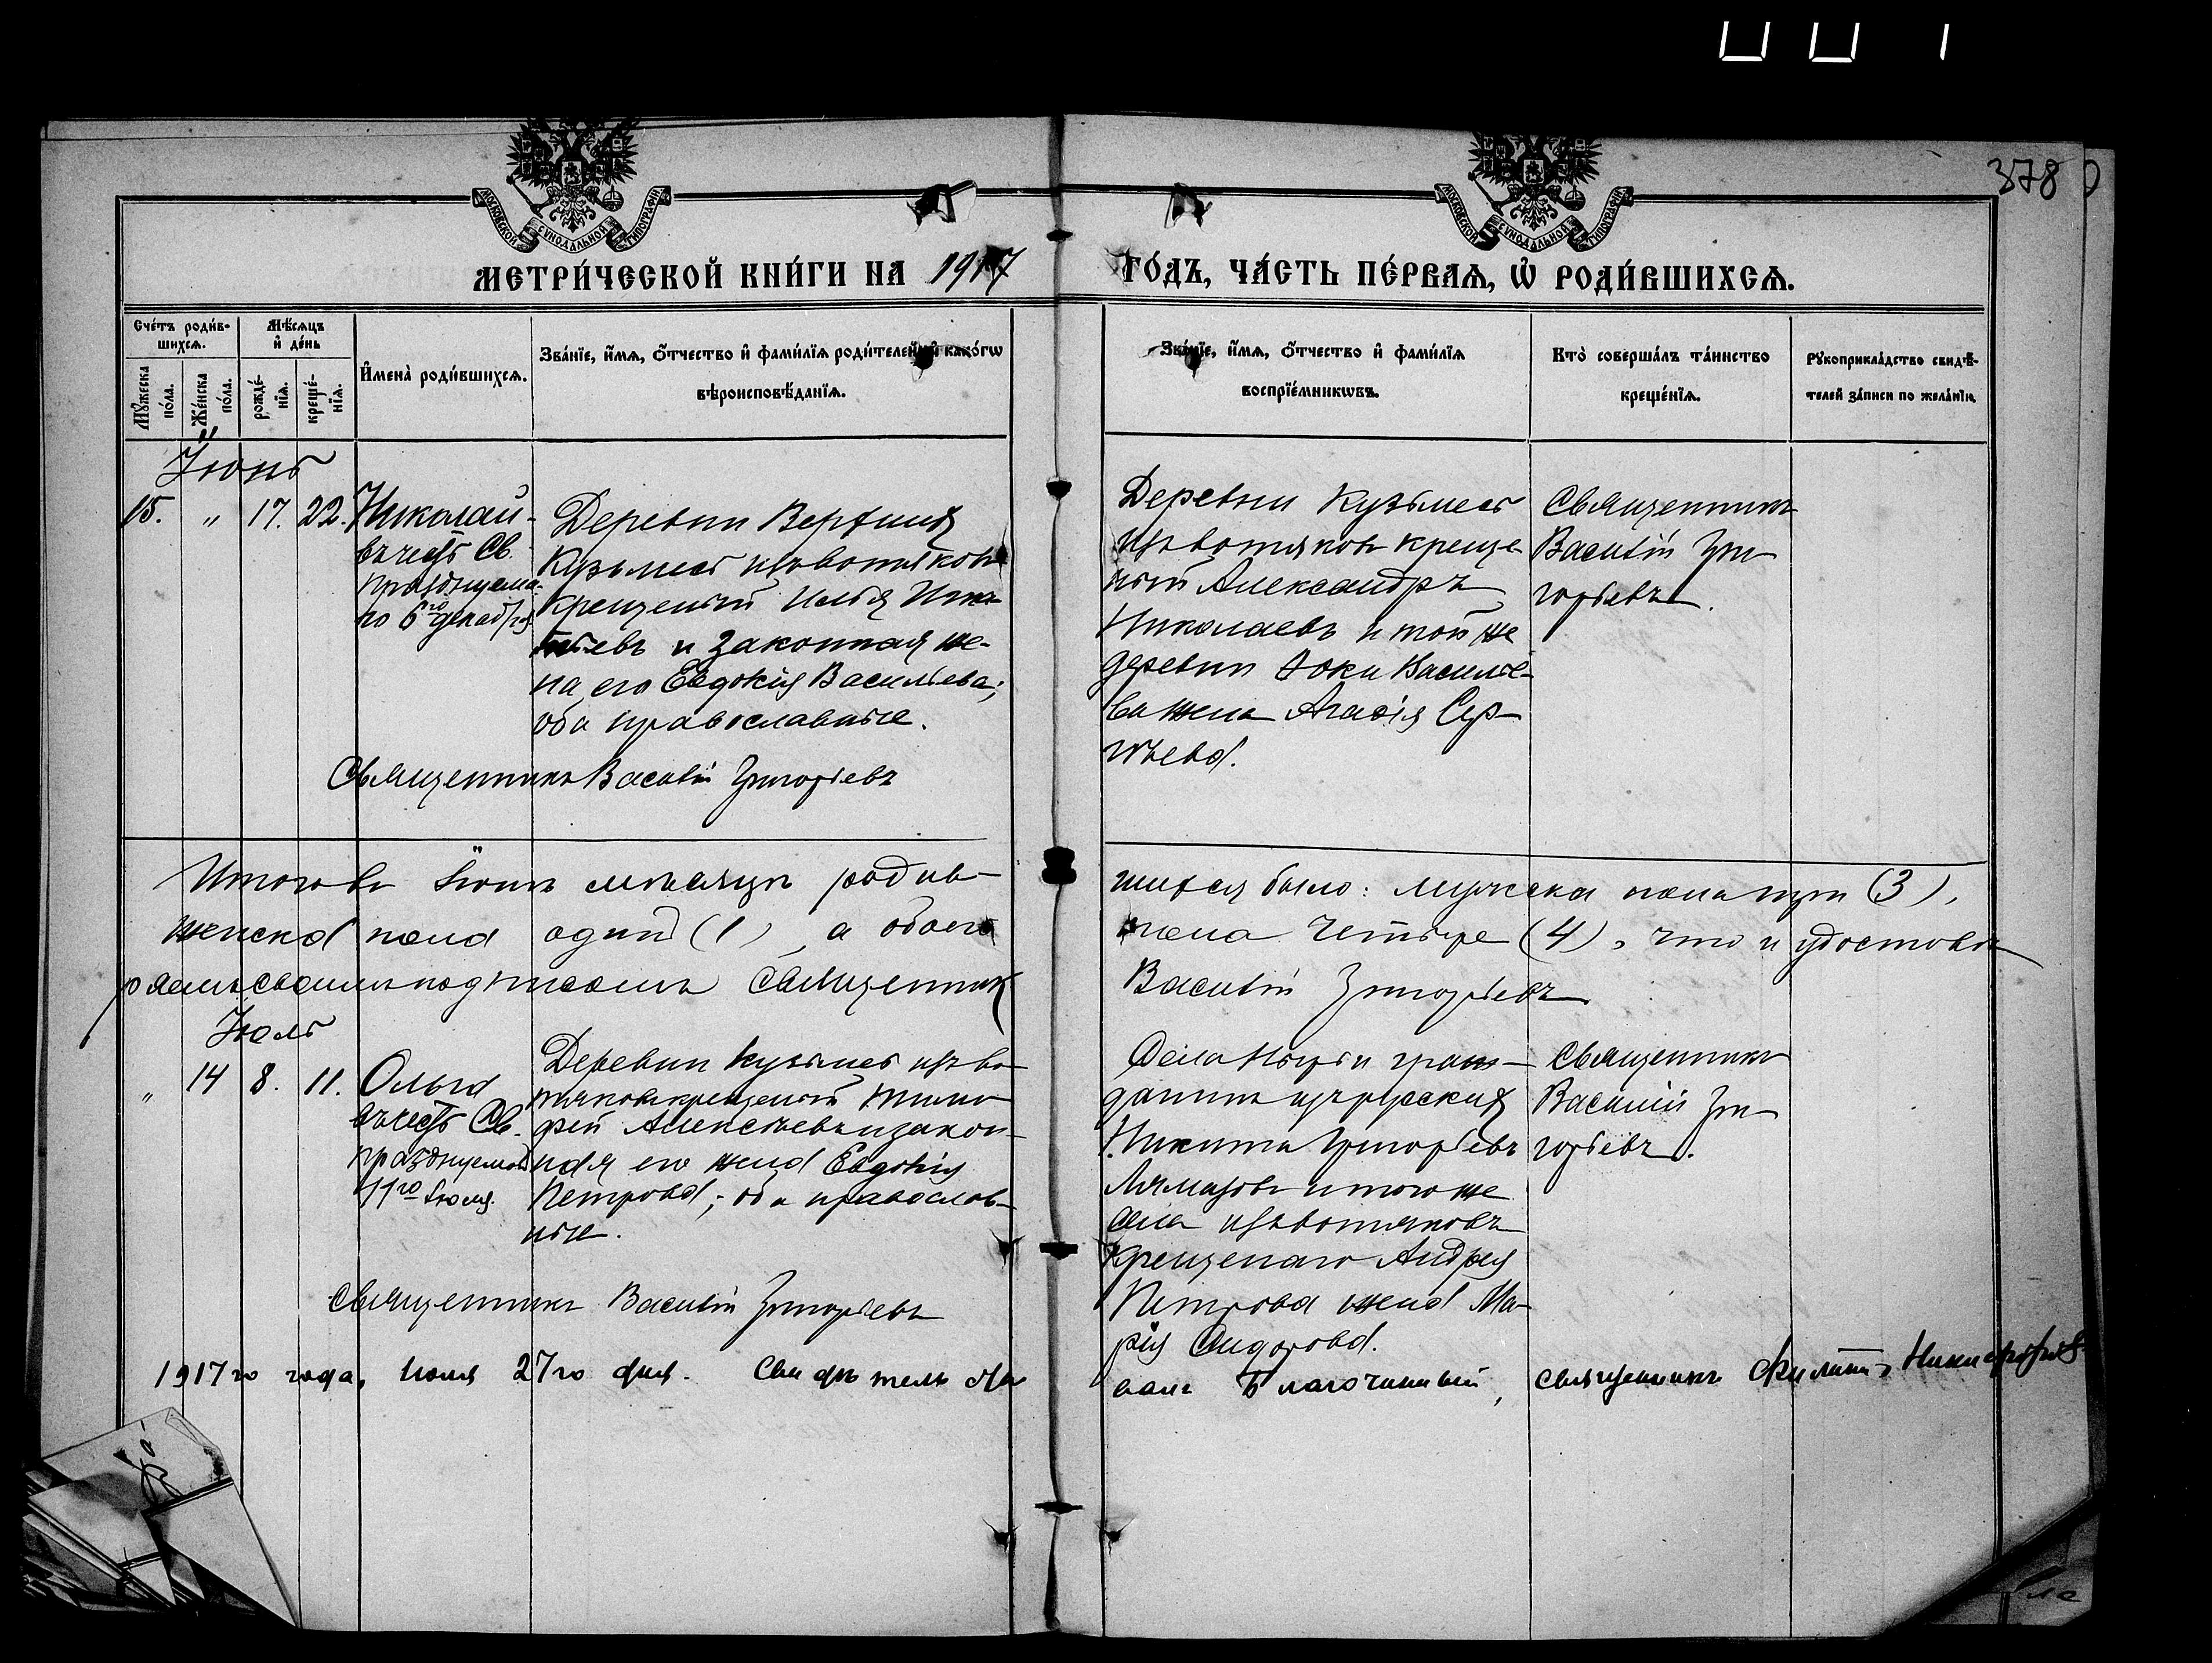 378
МОСКОВСКОЙ СѴНОДАЛЬНОЙ ТИПОГРАФІИ
МОСКОВСКОЙ СѴНОДАЛЬНОЙ ТИПОГРАФІИ
МЕТРИ́ЧЕСКОЙ КНИ́ГИ НА 1917 ГО́ДЪ, ЧА́СТЬ ПЕ́РВАѦ, Ѡ҆ РОДИ́ВШИХСѦ.
Сче́тъ роди́в-
шихсѧ.
Мꙋ́жеска по́ла.
Же́нска по́ла.
Мѣ́сѧцъ и҆ де́нь
рожде́-нїѧ.
креще́-нїѧ.
И҆мена̀ роди́вшихсѧ.
Зва́нїе, и҆́мѧ, ѻ҆́тчество и҆ фами́лїѧ роди́телей, и҆ како́гѡ
вѣроисповѣ́данїѧ.
Зва́нїе, и҆́мѧ, ѻ҆́тчество и҆ фами́лїѧ
воспрїе́мникѡвъ.
Кто̀ соверша́лъ та́инство
креще́нїѧ.
Рꙋкоприкла́дство свидѣ́-
телей за́писи по жела́нїю.
Іюнь
15. " 17. 22.
Николай-
въ честь Св.
празднуема-
го 6го декабря
Деревни Верхнія
Кузьмес изъ вотяковъ
крещеный Илья Игна-
тьевъ и законная же-
на его Евдокія Васильева;
оба православные.
Деревни Кузьмес
изъ вотяковъ креще-
ный Александръ
Николаевъ и той же
деревни Фоки Василье-
ва жена Агафія Сер-
гѣева.
Священникъ
Василій Гри-
горьевъ.
Священникъ Василій Григорьевъ
Итого въ Іюнѣ мѣсяцѣ родив-
шихся было: мужска пола три (3),
женска пола один (1), а обоего
пола четыре (4), что и удостовѣ-
ряемъ своимъ подписомъ Священник
Василій Григорьевъ
Іюль
" 14 8. 11.
Ольга
въ честь Св.
празднуемой
11го Іюля.
Деревни Кузьмес изъ во-
тяковъ крещеный Тимо-
фей Алексѣевъ и закон-
ная его жена Евдокія
Петрова; оба православ-
ные.
Села Нырьи граж-
данинъ изъ русскихъ
Никита Григорьевъ
Алмазовъ и того же
села изъ вотяковъ
крещенаго Андрея
Петрова жена Ма-
рія Сидорова.
Священникъ
Василій Гри-
горьевъ.
Священникъ Василій Григорьевъ
1917го года, Іюля 27го дня. Свидѣтельство-
валъ Благочинный, священникъ Филиппъ Никифоровъ